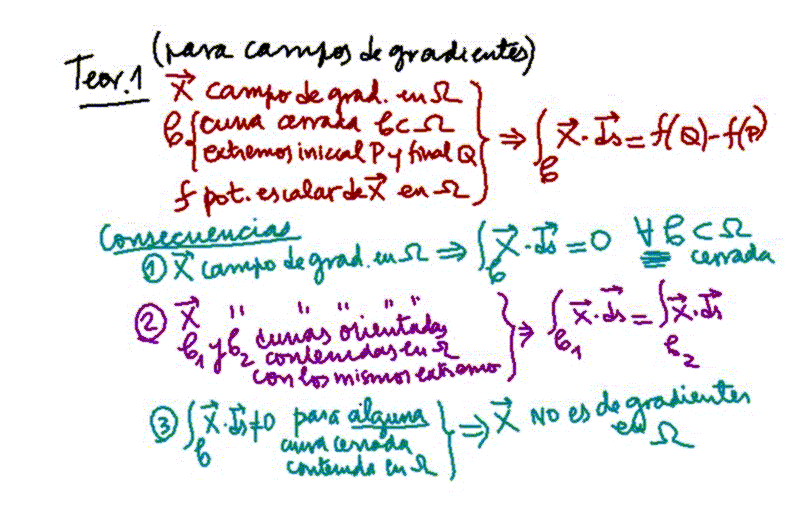 Teor.1 (para campos de gradientes)
$\vec{X}$ campo de grad. en Ω
$\mathcal{C}$ { curva cerrada $\mathcal{C}$ ⊂ Ω
extremos inicial P y final Q } ⇒ $\int_{\mathcal{C}} \vec{X}\cdot\vec{ds} = f(Q)-f(P)$
f pot. escalar de $\vec{X}$ en Ω
Consecuencias
① $\vec{X}$ campo de grad. en Ω ⇒ $\int_{\mathcal{C}} \vec{X}\cdot\vec{ds} = 0$ ∀ $\mathcal{C}$ ⊂ Ω
cerrada
② $\vec{X}$ " " " " "
$\mathcal{C}_1$ y $\mathcal{C}_2$ curvas orientadas
contenidas en Ω
con los mismos extremo } ⇒ $\int_{\mathcal{C}_1} \vec{X}\cdot\vec{ds} = \int_{\mathcal{C}_2} \vec{X}\cdot\vec{ds}$
③ $\int_{\mathcal{C}} \vec{X}\cdot\vec{ds} \neq 0$ para alguna
curva cerrada
contenida en Ω } ⇒ $\vec{X}$ NO es de gradientes
en Ω